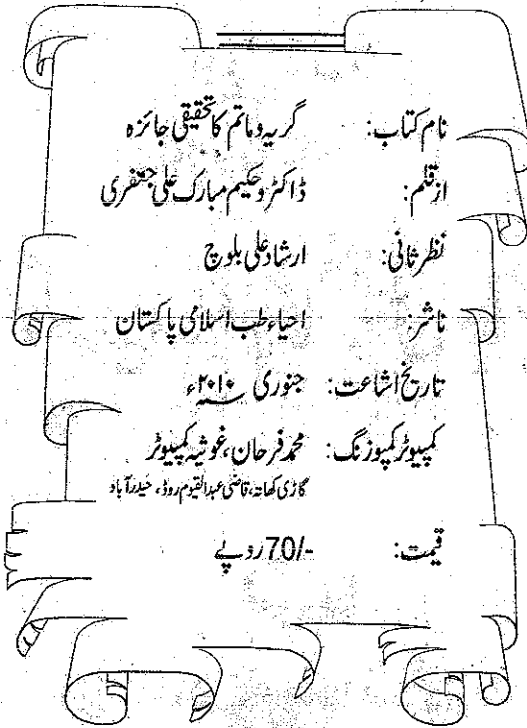 نام کتاب: گریہ وماتم کا تحقیقی جائزہ
ازقلم: ڈاکٹر وحکیم مبارک علی جعفری
نظرثانی: ارشاد علی بلوچ
ناشر: احیاء طب اسلامی پاکستان
تاریخ اشاعت: جنوری ۲۰۱۰ء
کمپیوٹر کمپوزنگ: محمد فرحان، غوثیہ کمپیوٹر
گاڑی کھاتہ، قاضی عبدالقیوم روڈ، حیدرآباد
قیمت: 70/- روپے